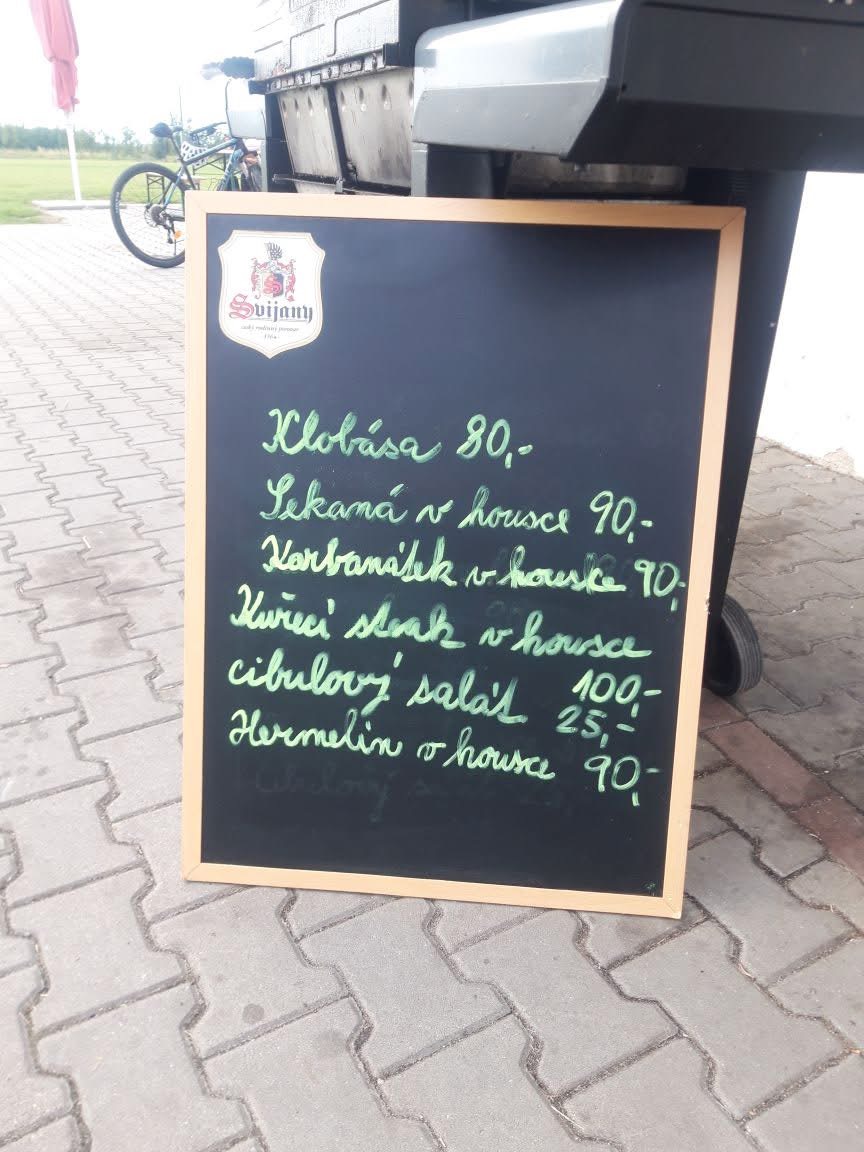 Svijany
český rodinný pivovar
1564
Klobása 80,-
Sekaná v housce 90,-
Karbanátek v housce 90,-
Kuřecí steak v housce
100,-
cibulový salát 25,-
Hermelín v housce 90,-